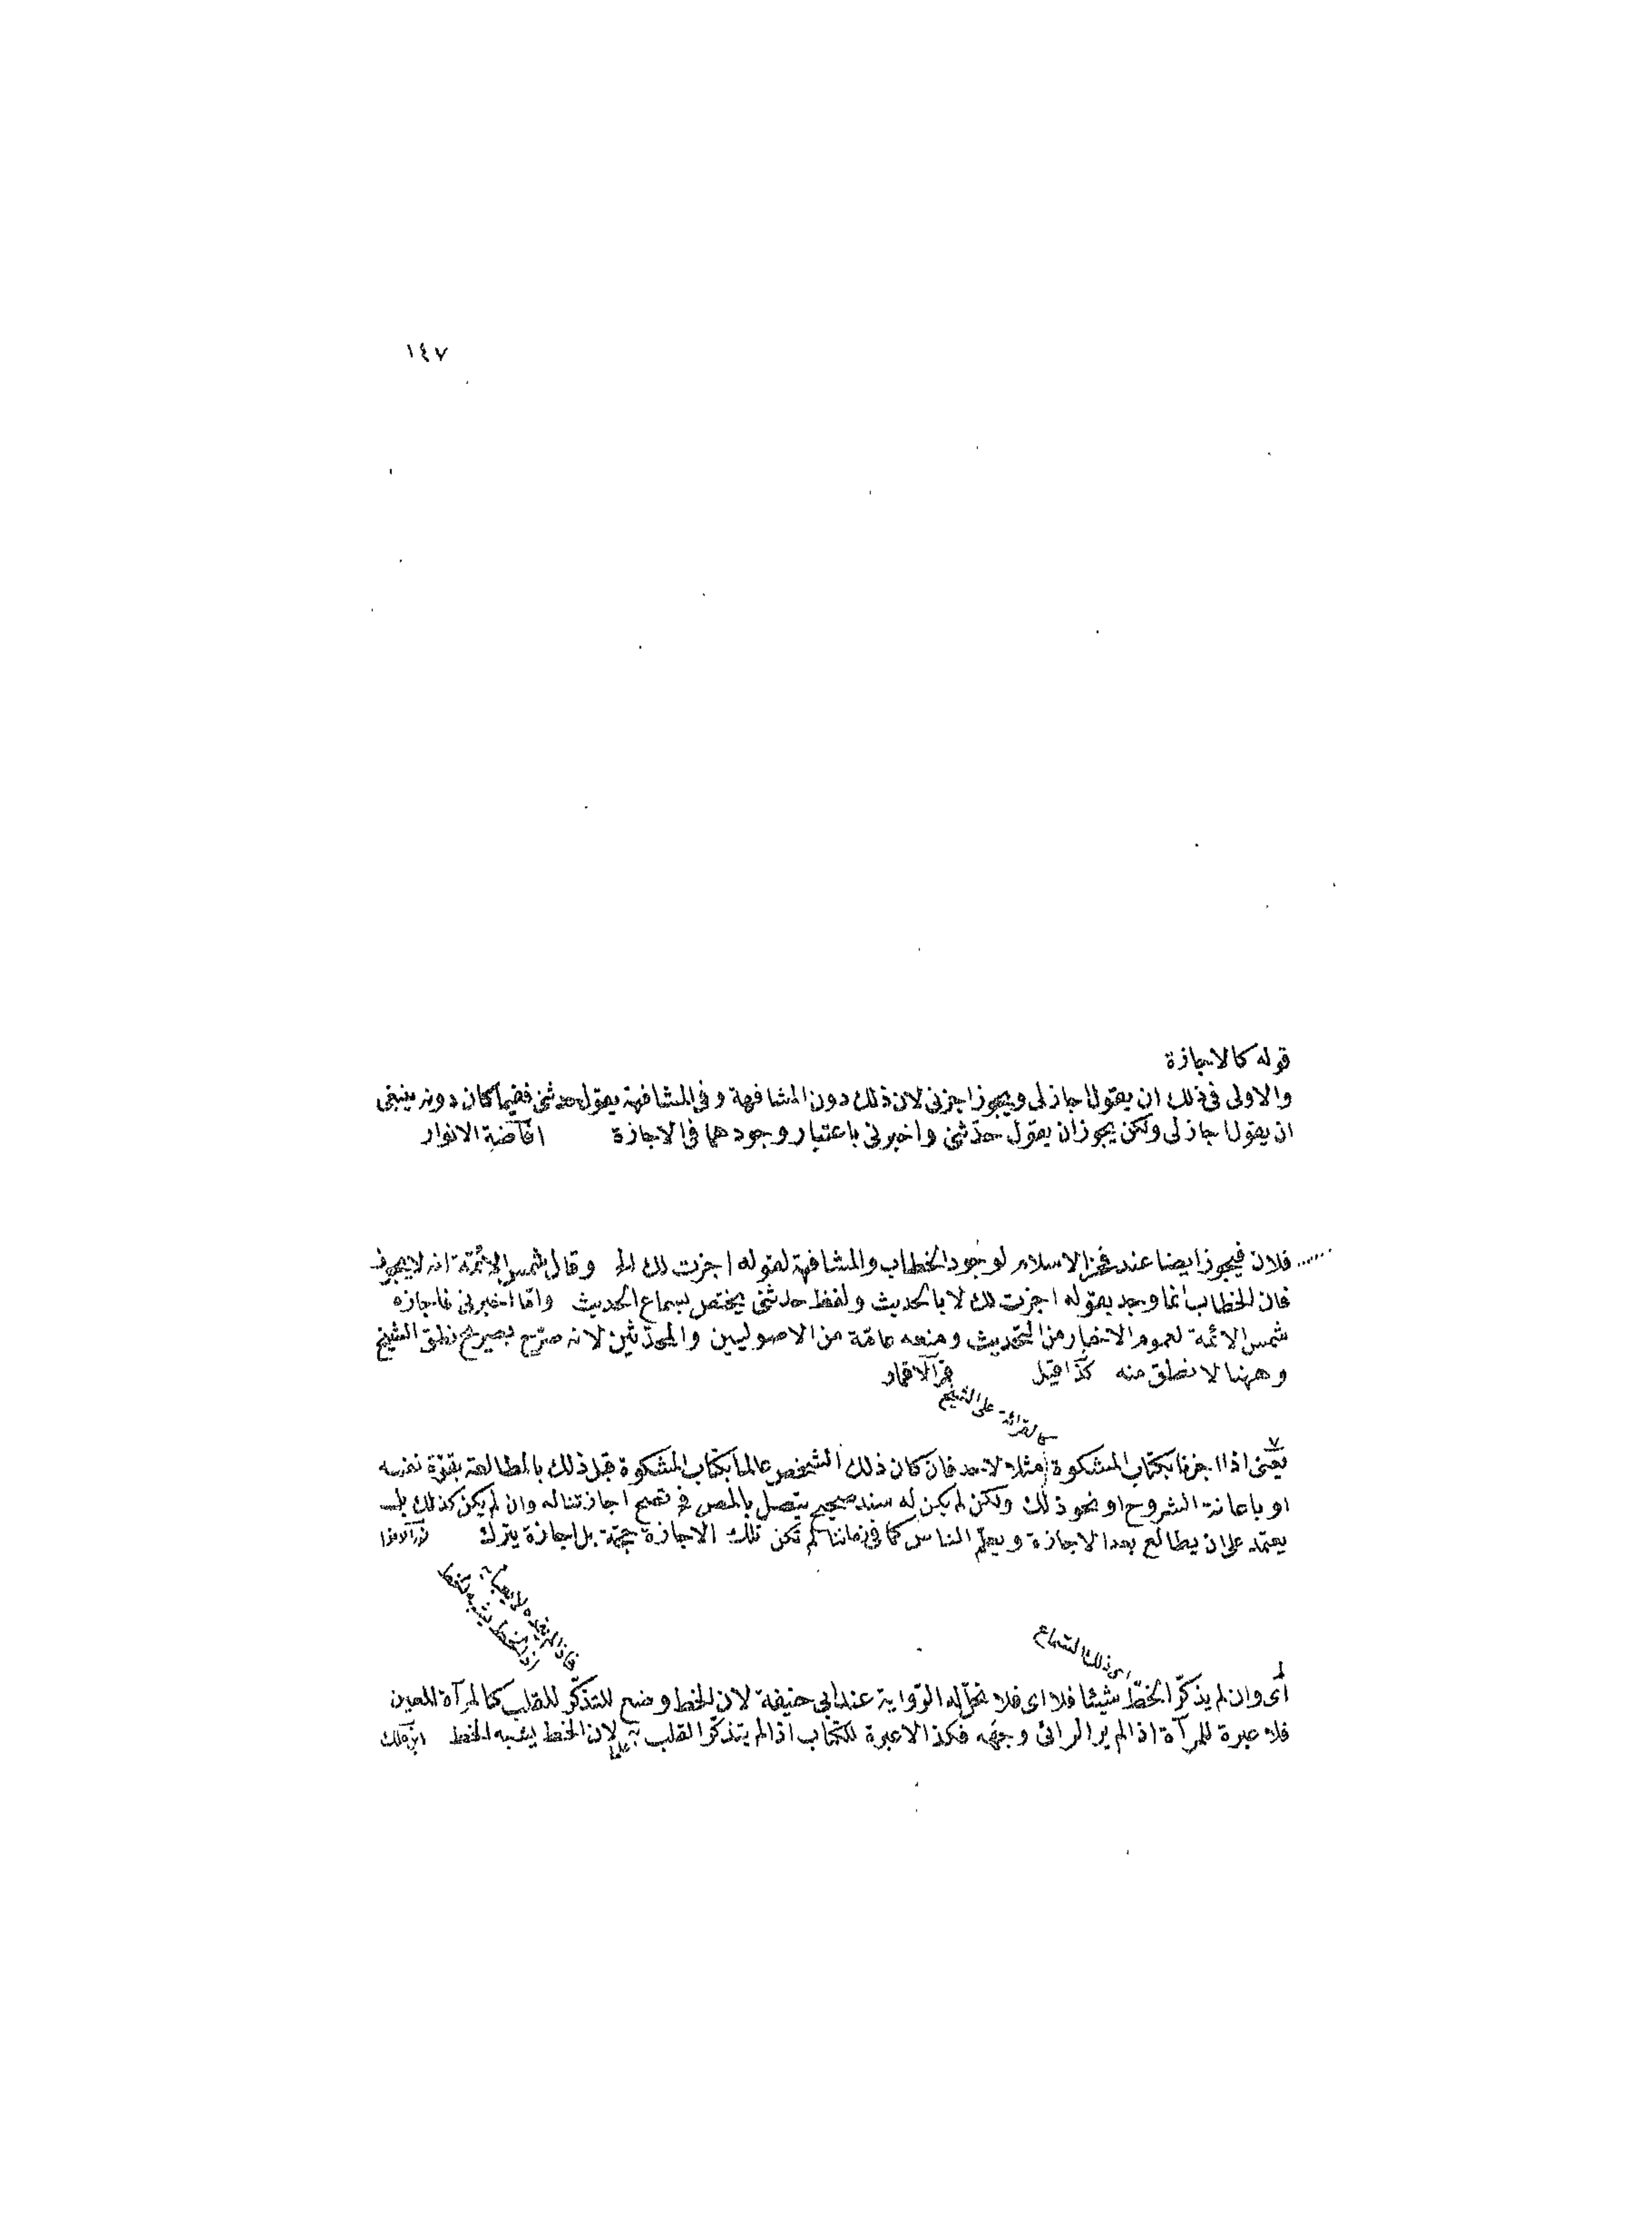 ١٤٧
قوله كالاجازة
والاولى فى ذلك ان يقول اجاز لى ويجوز اجزنى لان ذلك دون المشافهة وفى المشافهة يقول حدثنى ففيما كان دونه ينبغى
ان يقول اجاز لى ولكن يجوز ان يقول حدّثنى واخبرنى باعتبار وجودهما فى الاجازة افاضة الانوار
...... فلان فيجوز ايضا عند فخر الاسلام لوجود الخطاب والمشافهة لقوله اجزت لك الخ وقال شمس الائمّة انه لا يجوز
فان الخطاب انما وجد بقوله اجزت لك لا بالحديث ولفظ حدثنى يختص بسماع الحديث وامّا اخبرنى فاجازه
شمس الائمة لعموم الاخبار من التحديث ومنعه عامّة من الاصوليين والمحدّثين لانه صرّح بصريح نطق الشيخ
وههنا لا نطق منه كذا قيل قمر الاقمار
القرائة على الشيخ
٧
يعنى اذا اجزنا بكتاب المشكوة مثلا لاحد فان كان ذلك الشخص عالما بكتاب المشكوة قبل ذلك بالمطالعة بقوّة نفسه
او باعانة الشروح او نحو ذلك ولكن لم يكن له سند صحيح يتصل بالمص فح تصح اجازتنا له وان لم يكن كذلك بل
يعتمد على ان يطالع بعد الاجازة ويعلّم الناس كما فى زماننا لم تكن تلك الاجازة حجّة بل اجازة يترك نور الانوار
اى ذلك السّماع
اى وان لم يذكّر الخطّ شيئا فلا اى فلا تحلّ له الرّواية عند ابى حنيفة لان الخط وضع للتذكّر للقلب كالمرآة للعين
فلا عبرة للمرآة اذا لم ير الرائى وجهه فكذا لا عبرة للكتاب اذا لم يتذكّر القلب به لان الخط يشبه الخط ابن ملك